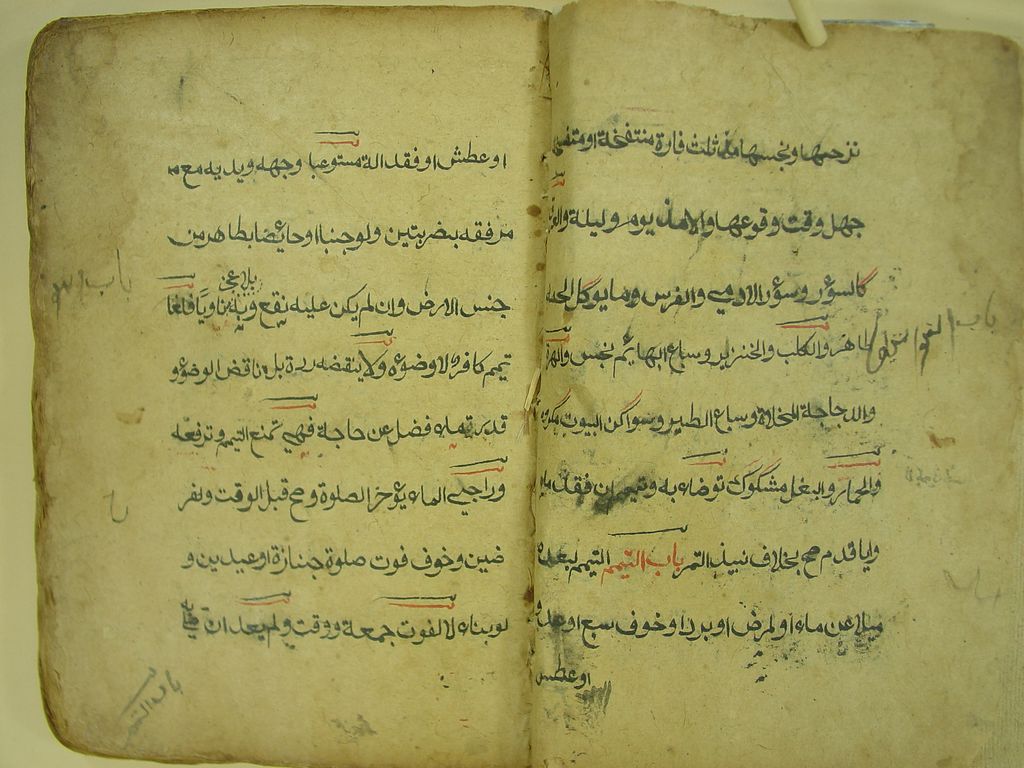 نزحها ونجسها مذ ثلث فارة منتفخة او متفسخة
جهل وقت وقوعها والا مذ يوم وليلة والعرق
كالسؤر وسؤر الادمي والفرس وما يوكل لحمه
طاهر والكلب والخنزير وسباع البهايم نجس والهرة
والدجاجة المخلاة وسباع الطير وسواكن البيوت مكروه
والحمار والبغل مشكوك توضاء به وتيمم ان فقد ماء
وايا قدم صح بخلاف نبيذ التمر باب التيمم التيمم لبعده
ميلا عن ماء او لمرض او برد او خوف سبع او عدو
او عطش
باب
او عطش او فقد الة مستوعبا وجهه ويديه مع م
مرفقه بضربتين ولو جنبا او حايضا بطاهر من
بلا عجز
جنس الارض وان لم يكن عليه نقع وبه ناويا فلغا
تيمم كافر لا وضوءه ولا ينقضه ردة بل ناقض الوضوء و
قدرة ماء فضل عن حاجة فهي تمنع التيمم وترفعه
وراجي الماء يؤخر الصلوة وصح قبل الوقت ولفر
ضين وخوف فوت صلوة جنازة او عيدين و
لو بناء لا لفوت جمعة ووقت ولم يعد ان
باب
باب التيمم